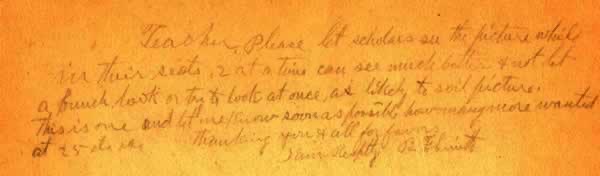 Teacher, Please let scholars see the picture while
in their seats, 2 at a time can see much better & not let
a bunch look or try to look at once, as likely to soil picture.
This is one and let me know soon as possible how many more wanted
at 25 cts
thanking you & all for favor